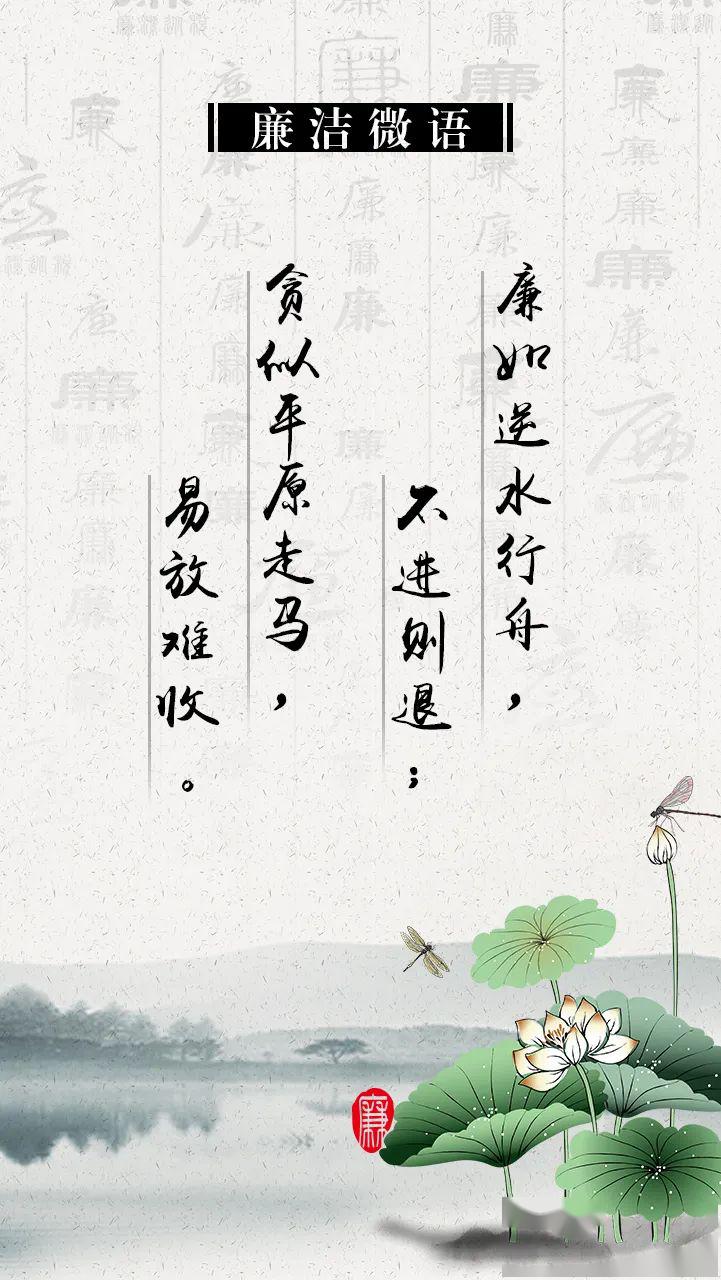 廉洁微语
廉如逆水行舟，
不进则退；
贪似平原走马，
易放难收。
廉